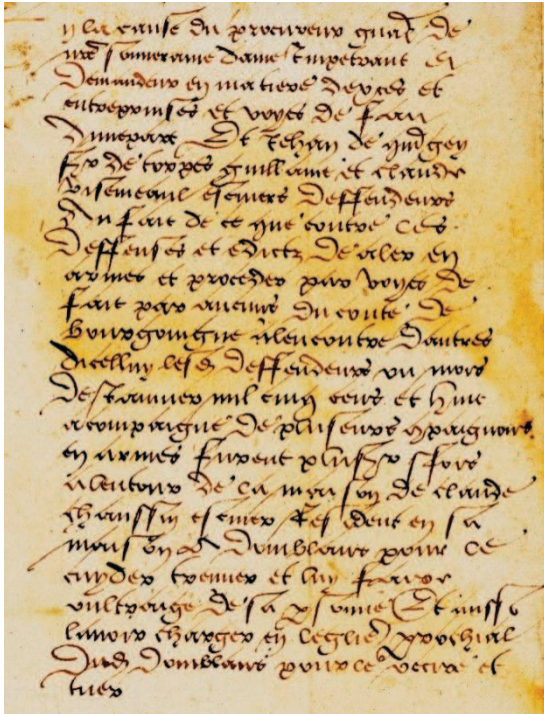 En la cause du procureur gnal de
nre souveraine dame Impetrant et
demandeur en matiere dexces et
entreprinses et voyes de fait
dunepart Et Jehan de
sr de corpes guillame et claude
visemeaul escuiers deffendeurs
Du fait de ce que contre les
deffenses et edictz de aler en
armes et proceder par voyes de
fait par aucuns du conte de
bourgoingne alencontre dautres
dicelluy lesd deffendeurs ou mois
de Janvier mil cinq cens et huit
acompaigne de pluseurs compaignons
en armes furent plusr fois
alentour de la maison de claude
chaussin escuier Resident en sa
maison de domblans pour le
cuyder trouver et luy faire
oultraige de sa psonne Et aussi
lavoir charger en leglise prochial
dud domblans pour le et
tuer